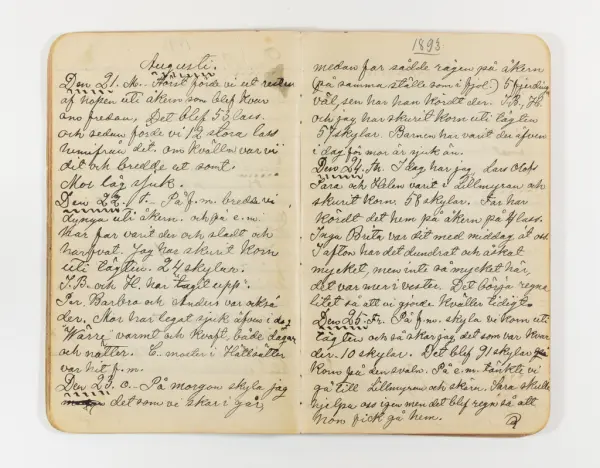 Augusti.
Den 21. M. Först förde vi ut resten
af högen uti åkern som blef kvar
om fredan. Det blef 53 lass.
och sedan förde vi 12 stora lass
hemifrån det. Om kvällen var vi
det och bredde ut somt.
Mor låg sjuk.
Den 22. t. På f.m. bredde vi
dynga uti åkern. och på e.m.
har far varit der och slodt och
harfvat. Jag har skurit korn
uti tägten. 24 skylar.
I.B. och H. har tagit upp
Per, Barbro och Anders var också
der. Mor har legat sjuk äfven i dag
"Wärre" varmt och kvaft, både dagar
och nätter. C. moster i Hättsätter
var hit f.m.
Den 23. o. På morgon skyla jag
det som vi skar i går,
1893
medan far sådde rågen på åkern
(på samma ställe som i fjol.) 5 fjerding
väl, sen har han kördt der. I.B., H.
och jag har skurit korn uti tägten
57 skylar. Barnen har varit der äfven
i dag för mor är sjuk än.
Den 24. th. I dag har jag, Lars Olofs
Sara och Helen varit i Lillmyran och
skurit korn 58 skylar. Far har
kördt det hem på åkern på 4 lass.
Inga Brita var dit med middag åt oss.
I afton har det dundrat och åskat
mycket, men inte så mycket här,
det var mer i vester. Det börja regna
litet så att vi gjorde kväller tidigt.
Den 25. Fr. På f.m. skyla vi korn uti
tägten och så skar jag det som var kvar
der. 10 skylar. Det blef 91 skylar
korn på den svaln. På e.m. tänkte vi
gå till Lillmyran och skära. Sara skulle
hjelpa oss igen men det blef regn så att
hon fick gå hem.